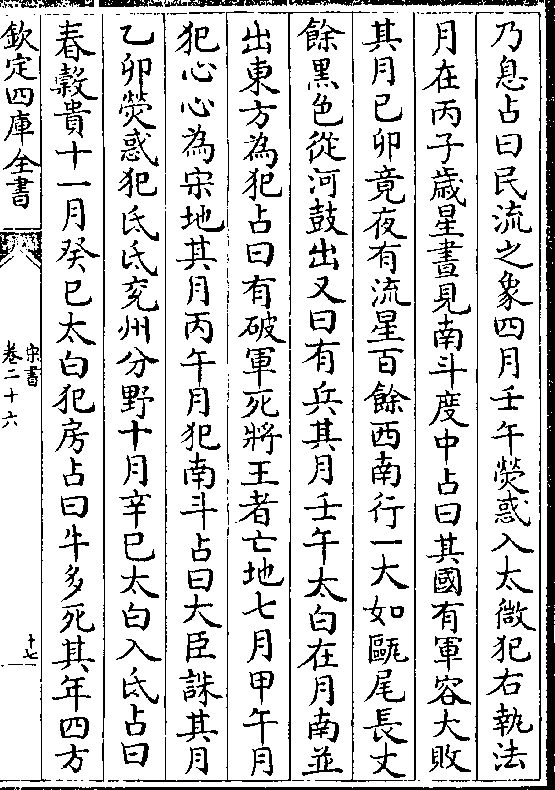 乃息占曰民流之象四月壬午熒惑入太微犯右執法
月在丙子歲星晝見南斗度中占曰其國有軍容大敗
其月己卯竟夜有流星百餘西南行一大如甌尾長丈
餘黑色從河鼓出又曰有兵其月壬午太白在月南並
出東方為犯占曰有破軍死將王者亡地七月甲午月
犯心心為宋地其月丙午月犯南斗占曰大臣誅其月
乙卯熒惑犯氐氐兗州分野十月辛巳太白入氐占曰
春穀貴十一月癸巳太白犯房占曰牛多死其年四方
欽定四庫全書
宋書
卷二十六
十七